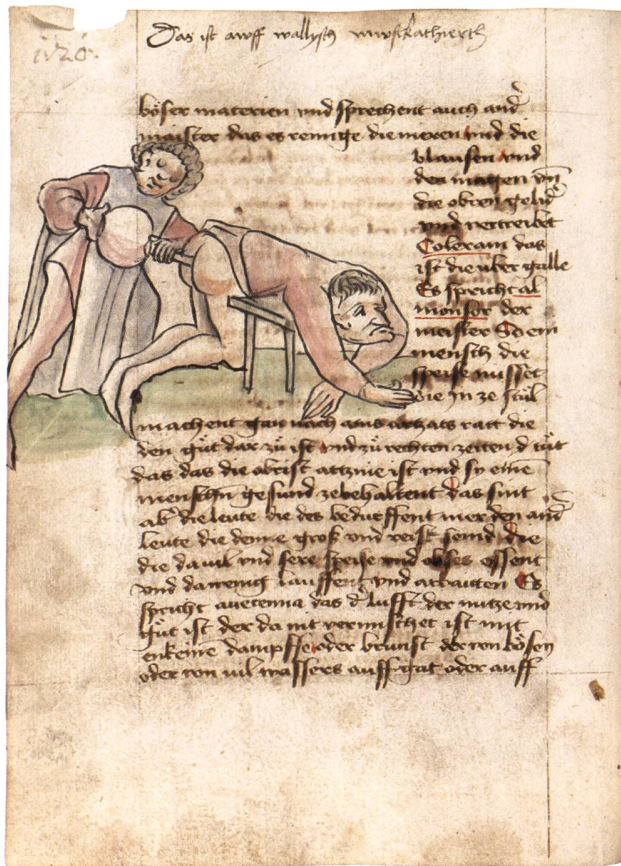 Das ist auff wallisch
böser materien und sprechent auch and
maister das es reinige die nieren und die
blausen und
den magen vn
die obren gelid
und vertreibet
Coleram das
ist die uber galle
Es spricht al
monsor der
meister So ein
mensch die
speise nusset
die in ze stůl
machent gan nach ains artzats ratt die
den gůt dar zů ist und zů rechten zeiten d tůt
das das die obrist artznie ist und sy eine
menschn gesund zebehaltent das sint
ab die leute die des bedurffent mer den and
leute die den groß und veist seind die
die da vil und sere speise und obses essent
und da wenig lauffen und arbaitten Es
spricht avicenna das d lufft der nutze und
gůt ist der da nit vermischet ist mit
enkeine dampffe oder brunst der von bösen
oder von vil wassers auffgat oder auff